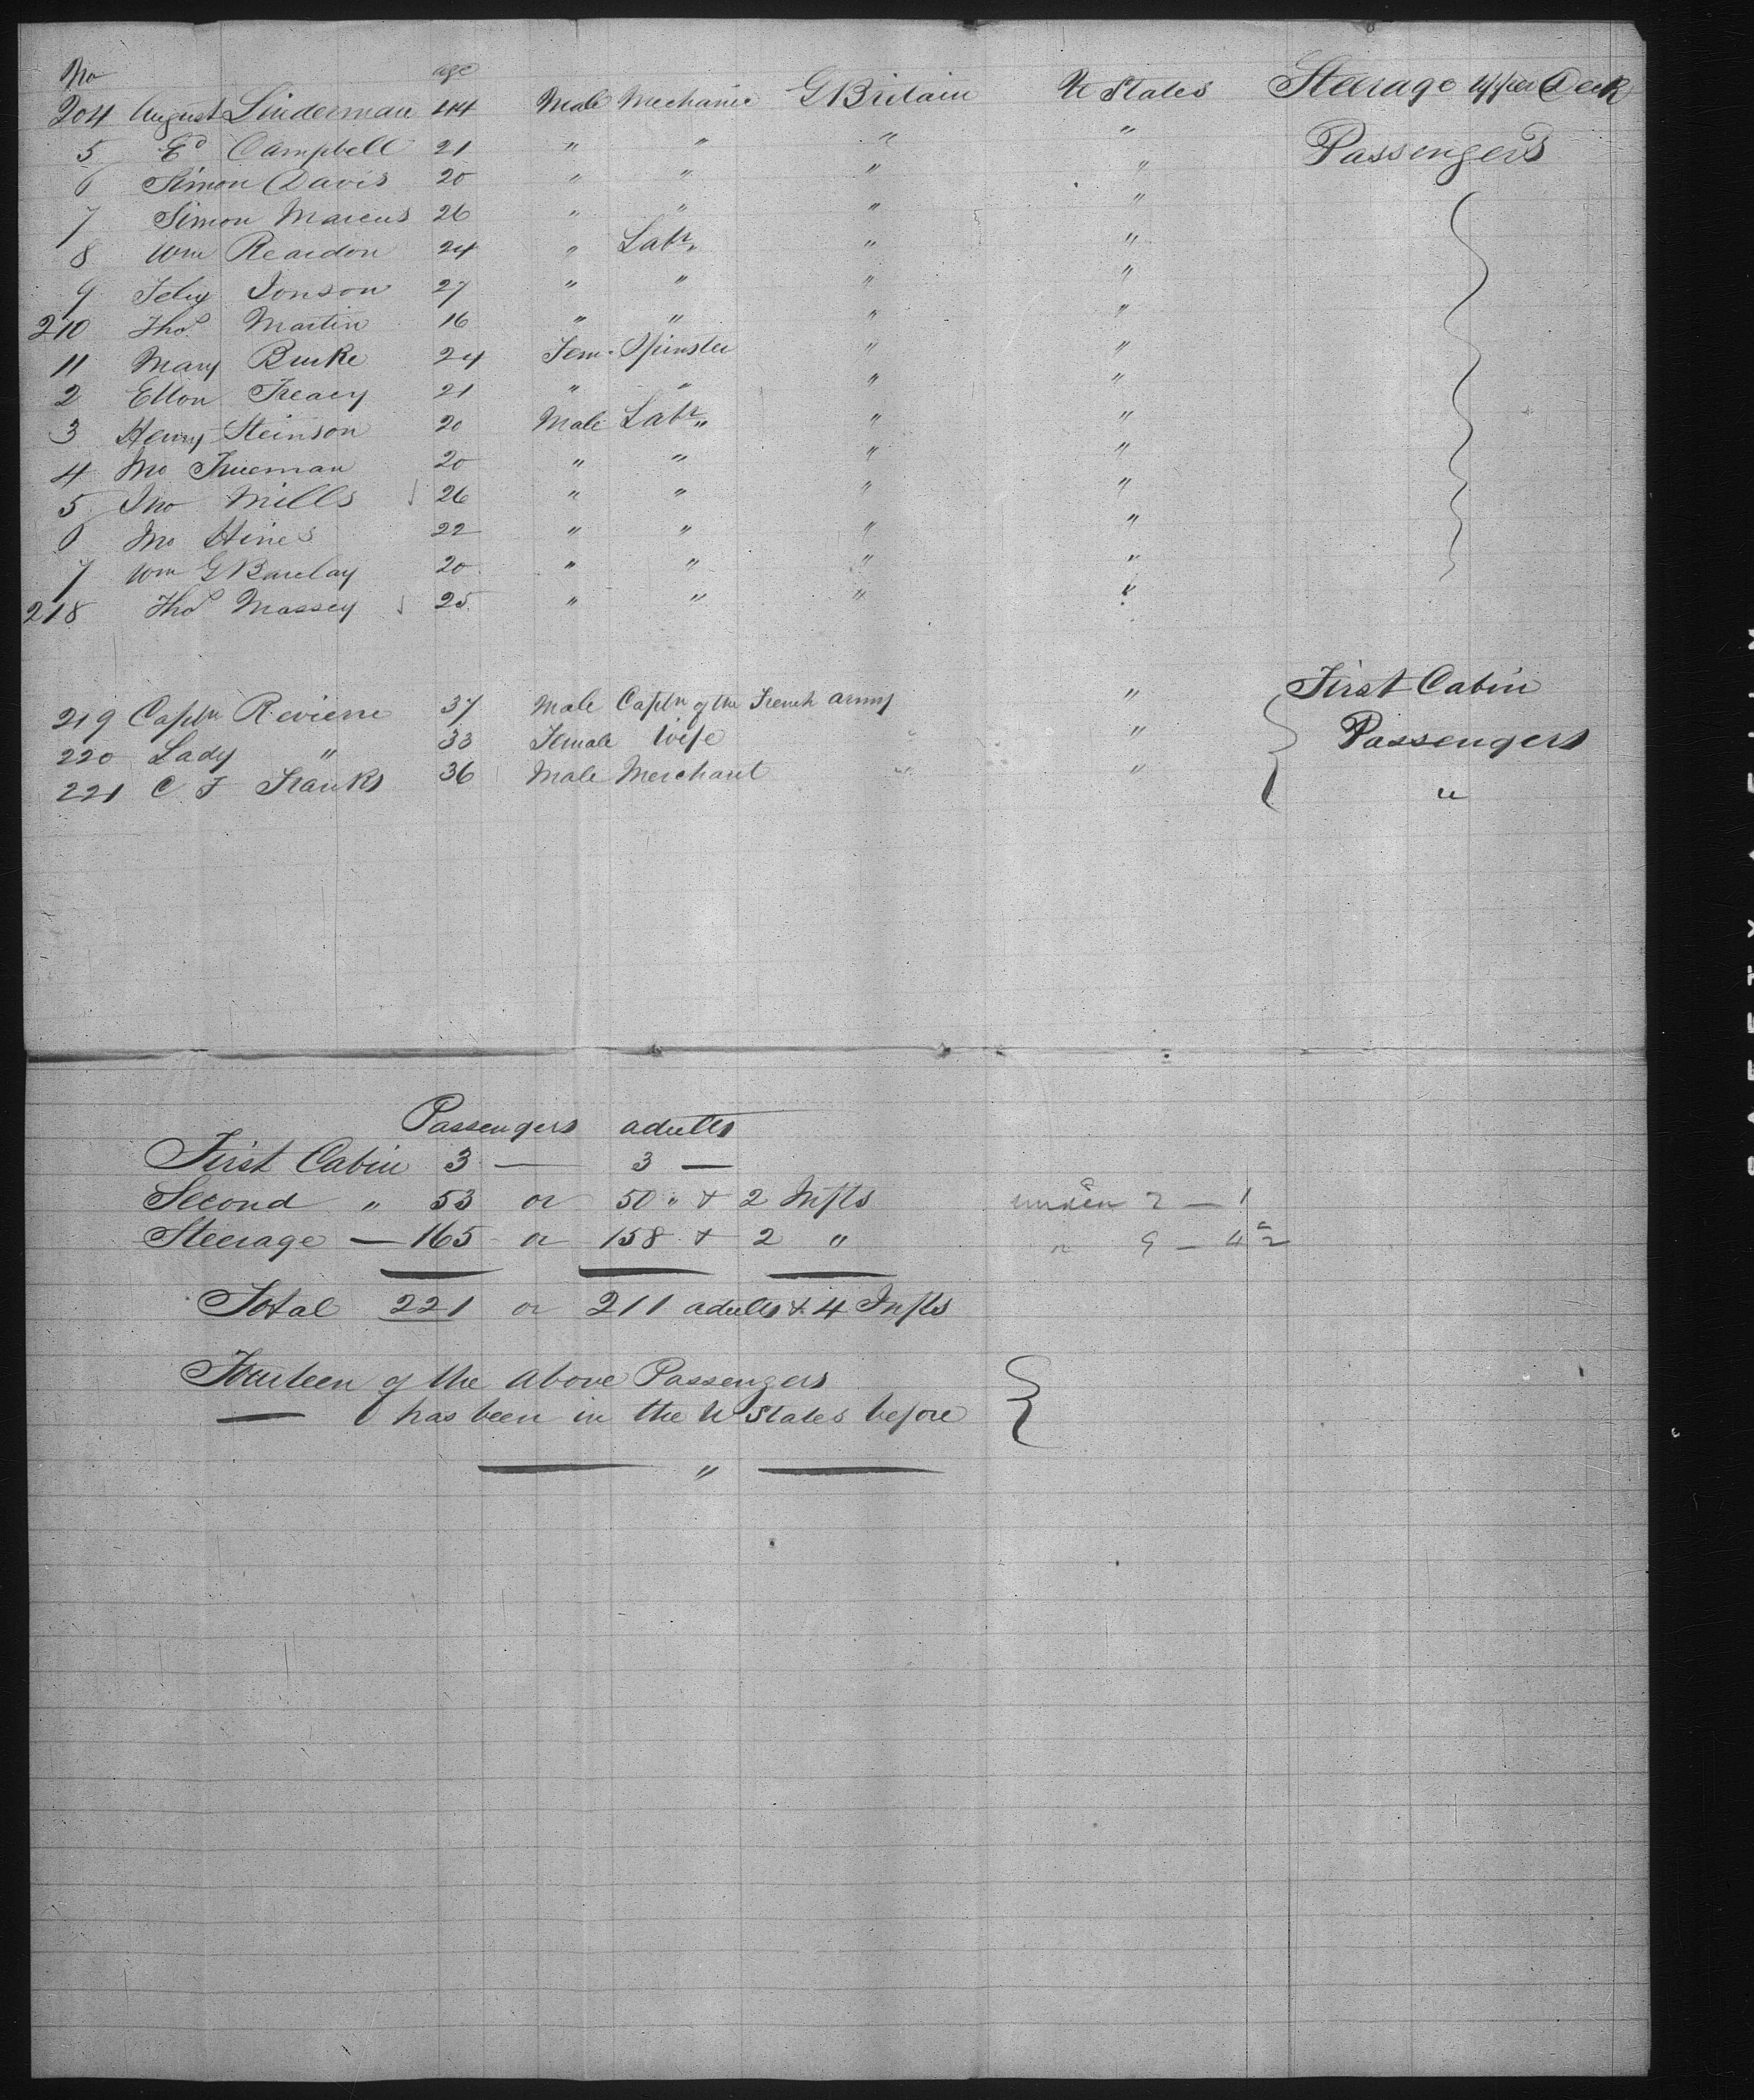 No age
204 August Linderman 44 Male Mechanic G Britain U States Steerage Upper Deck
5 Ed Campbell 21 " " " " Passengers
6 Simon Davis 20 " " " "
7 Simon Marcus 26 " " " "
8 Wm Reardon 24 " Labr " " "
9 Felix Jonson 27 " " " "
210 Thos Martin 16 " " " "
11 Mary Burke 24 Fem. Spinster " "
2 Ellon Treacy 21 " " " "
3 Henry Steinson 20 Male Labr " " "
4 Jno Trueman 20 " " " "
5 Jno Mills 26 " " " "
6 Jno Hines 22 " " " "
7 Wm G Barclay 20 " " " "
218 Thos Massey 25 " " " "
First Cabin
219 Captn Revierre 37 Male Captn of the French army "
220 Lady " 33 Female Wife " Passengers
221 C F Franks 36 Male Merchant " "
Passengers adults
First Cabin 3 — 3 —
Second " 53 or 50 " + 2 Infts under 2 — 1
Steerage — 165 - or 158 + 2 "
Total 221 or 211 adults + 4 Infts
Fourteen of the above Passengers
— has been in the U States before
— " —